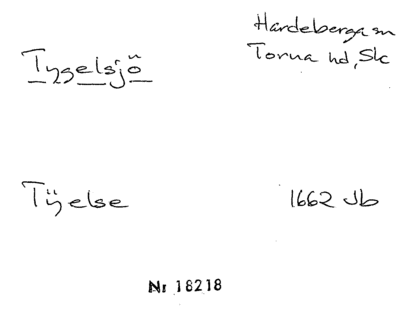 Hardeberga sn
Tygelsjö
Torna hd, Sk
Tÿelse
1662 Jb
Nr 18218